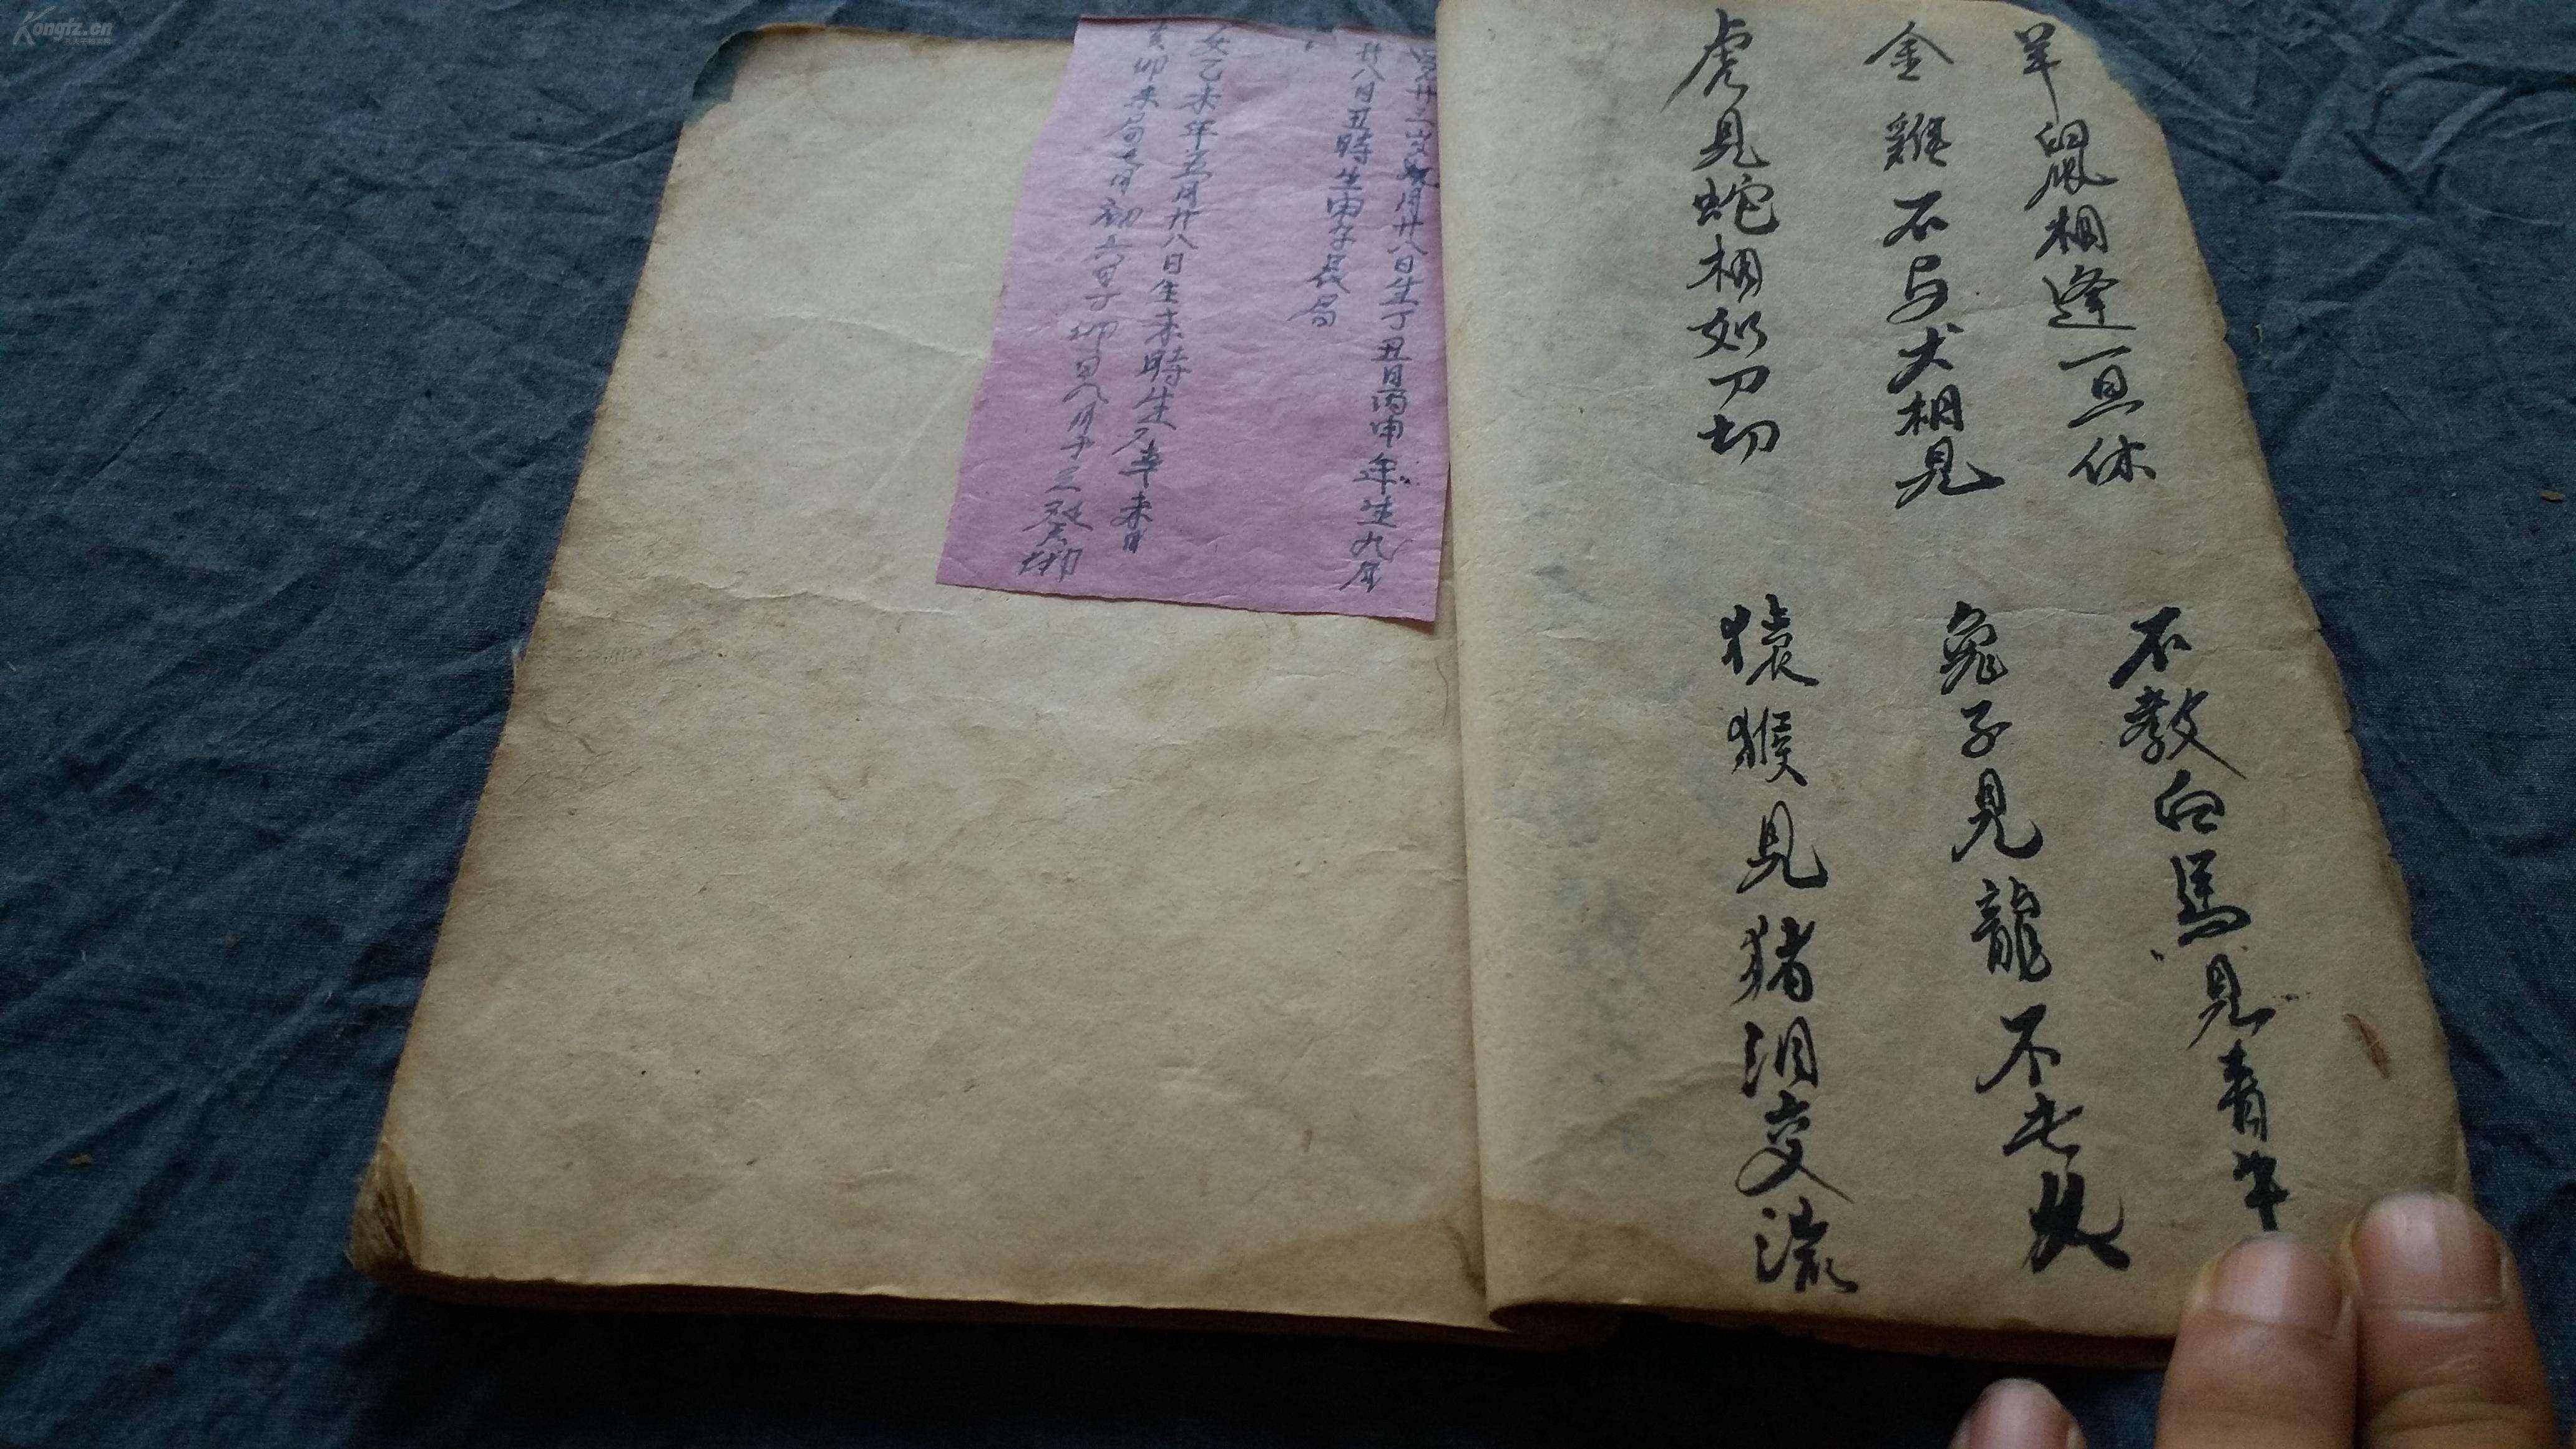 羊鼠相逢一旦休
不教白馬見青牛
金雞不与犬相見
兔子見龍不
虎見蛇相如刀切
猿猴見猪泪交流
月廿八日生丁丑日丙申年生九月
廿八日丑時生申子辰局
女乙未年五月廿八日生未時生不幸未月
卯未局七月初六日丁卯日八月十三癸卯
Kongfz.cn